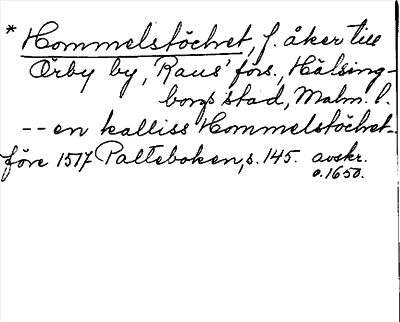 * Hommelstöchet, f. åker till
Örby by, 'Raus' förs., Hälsing-
borgs stad, Malm. l.
-- en kalliss Hommelstöchet -
före 1517 Palteboken, s. 145. avskr.
o. 1650.